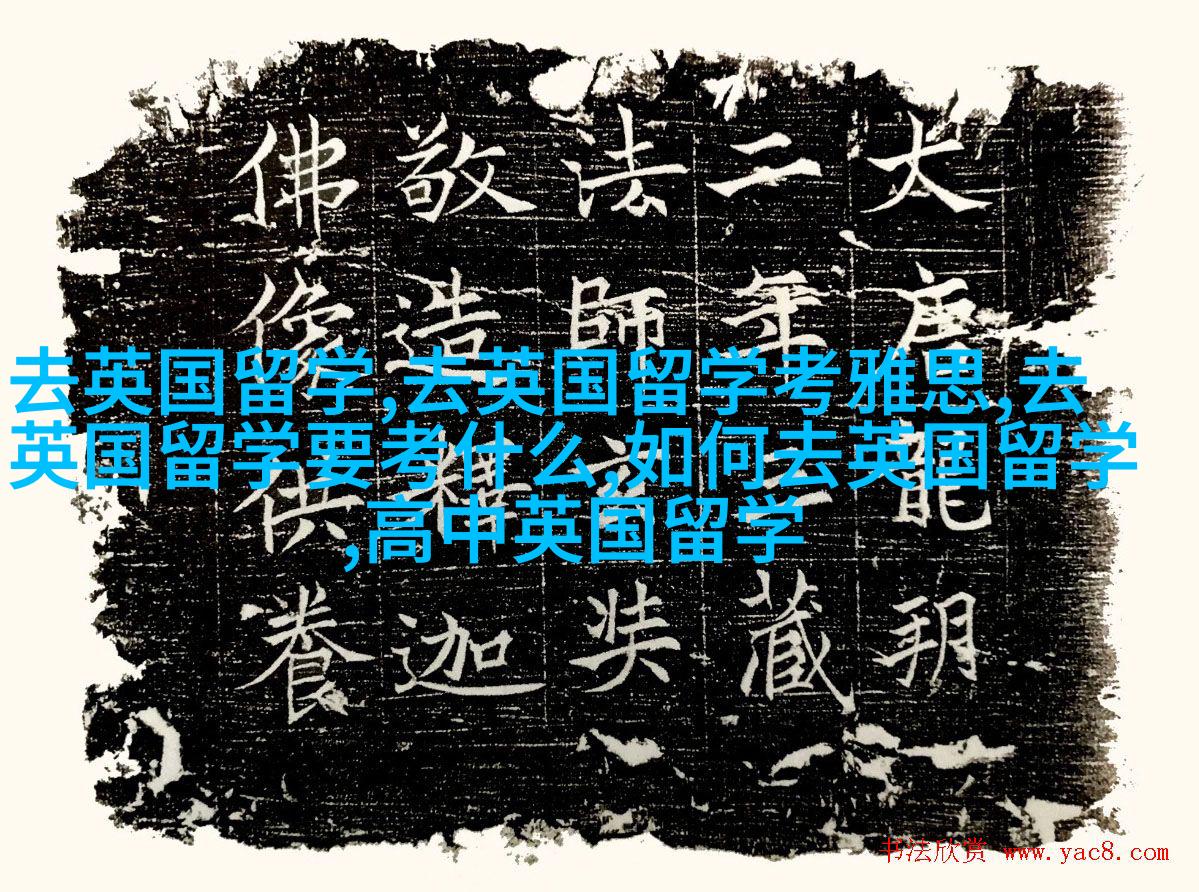 大唐龍朔
二年三藏
法師玄奘
敬造釋迦
佛像供養
去英国留学,去英国留学考雅思,去
英国留学要考什么,如何去英国留学
,高中英国留学
书法欣赏 www.yac8.com